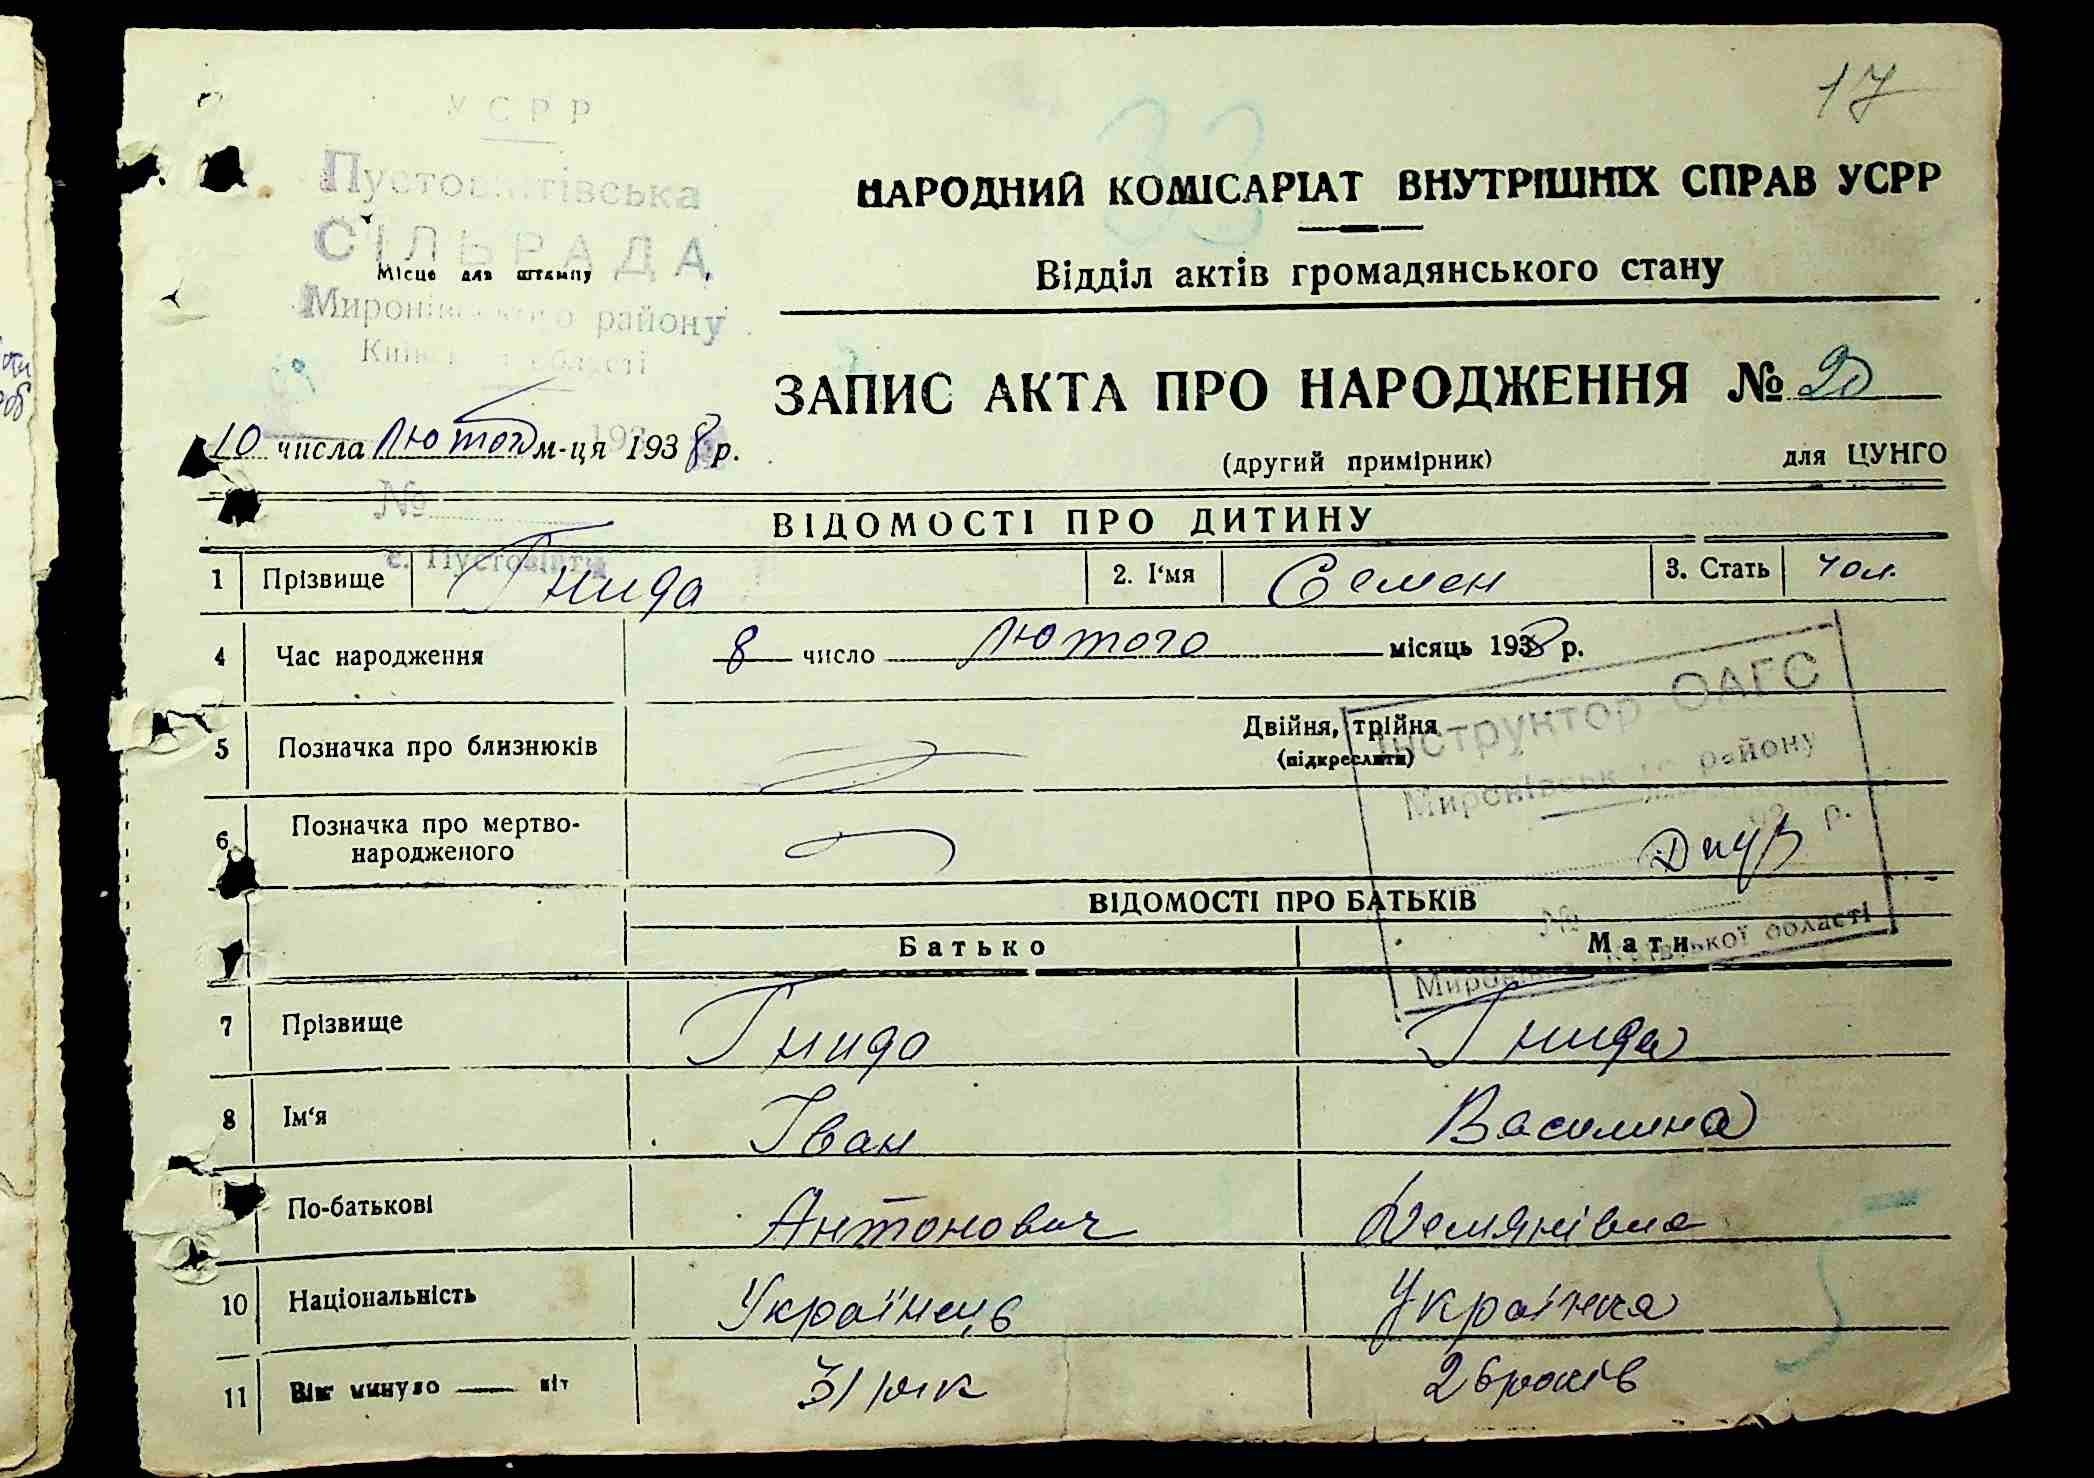 17
33
УСРР
Пустовитівська
СІЛЬРАДА
Місце для штампу
Миронівського району
Київської області
НАРОДНИЙ КОМІСАРІАТ ВНУТРІШНІХ СПРАВ УСРР
Відділ актів громадянського стану
ЗАПИС АКТА ПРО НАРОДЖЕННЯ № 20
10 числа Лютого м-ця 1938 р.
(другий примірник) для ЦУНГО
№
с. Пустовіти
ВІДОМОСТІ ПРО ДИТИНУ
1 Прізвище Гнида 2. І'мя Семен 3. Стать чол.
4 Час народження 8 число Лютого місяць 1938 р.
5 Позначка про близнюків Двійня, трійня
(підкреслити)
Інструктор ОАГС
Миронівського району
193 р.
№
Миронівка Київської області
6 Позначка про мертво-
народженого
ВІДОМОСТІ ПРО БАТЬКІВ
Батько Мати
7 Прізвище Гнида Гнида
8 Ім'я Іван Василина
По-батькові Антонович Демянівна
10 Національність Українець Українка
11 Вік минуло літ 31 рік 26 років